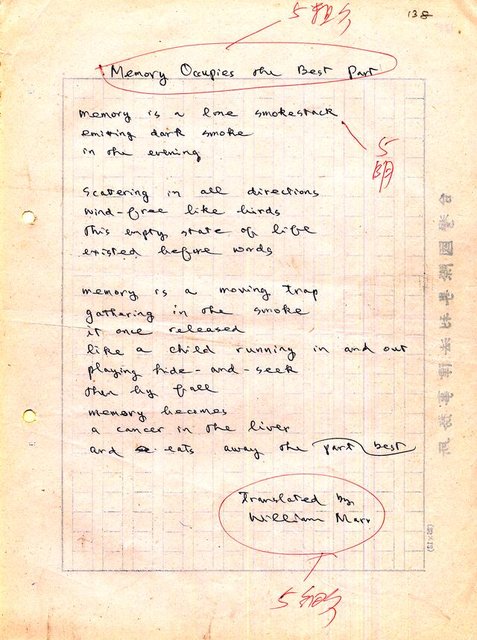 5粗
138
Memory Occupies the Best Part
memory is a lone smokestack
emitting dark smoke
in the evening
5
明
scatering in all directions
wind-free like birds
this empty state of life
existed before words
memory is a moving trap
gathering in the smoke
it once released
like a child running in and out
playing hide-and-seek
then by fall
memory becomes
a cancer in the liver
and eats away the part best
Translated by
William Marr
5